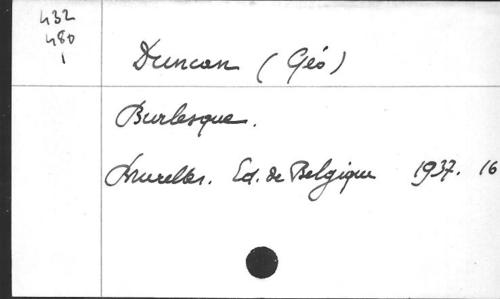 432
480
1
Duncan (Géo)
Burlesque.
Bruxelles. Ed. de Belgique 1937. 16